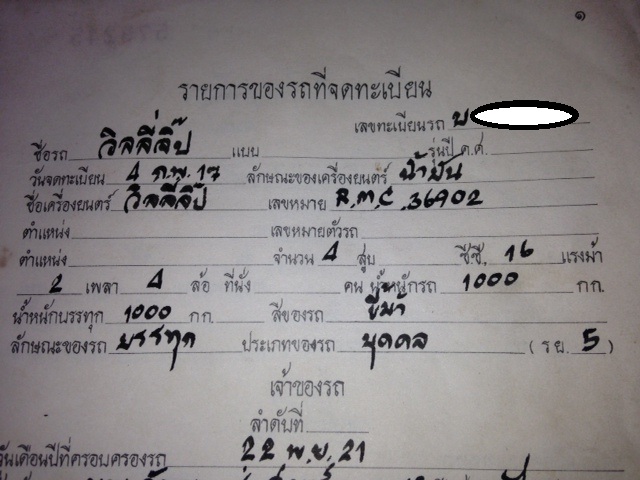 ๑
รายการของรถที่จดทะเบียน
เลขทะเบียนรถ บ
ชื่อรถ วิลลี่จิ๊ป แบบ รุ่นปี ค.ศ.
วันจดทะเบียน 4 ก.พ. 17 ลักษณะของเครื่องยนตร์ น้ำมัน
ชื่อเครื่องยนตร์ วิลลี่จิ๊ป เลขหมาย R.M.C. 36902
ตำแหน่ง เลขหมายตัวรถ
ตำแหน่ง จำนวน 4 สูบ ซีซี. 16 แรงม้า
2 เพลา 4 ล้อ ที่นั่ง คน น้ำหนักรถ 1000 กก.
น้ำหนักบรรทุก 1000 กก. สีของรถ ขี้ม้า
ลักษณะของรถ บรรทุก ประเภทของรถ บุคคล (รย. 5)
เจ้าของรถ
ลำดับที่
วันเดือนปีที่ครอบครองรถ 22 พ.ย. 21